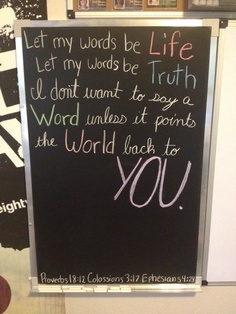 Let my words be Life
Let my words be Truth
I don't want to say a
Word unless it points
the World back to
YOU.
Proverbs 18:12 Colossians 3:17 Ephesians 4:29